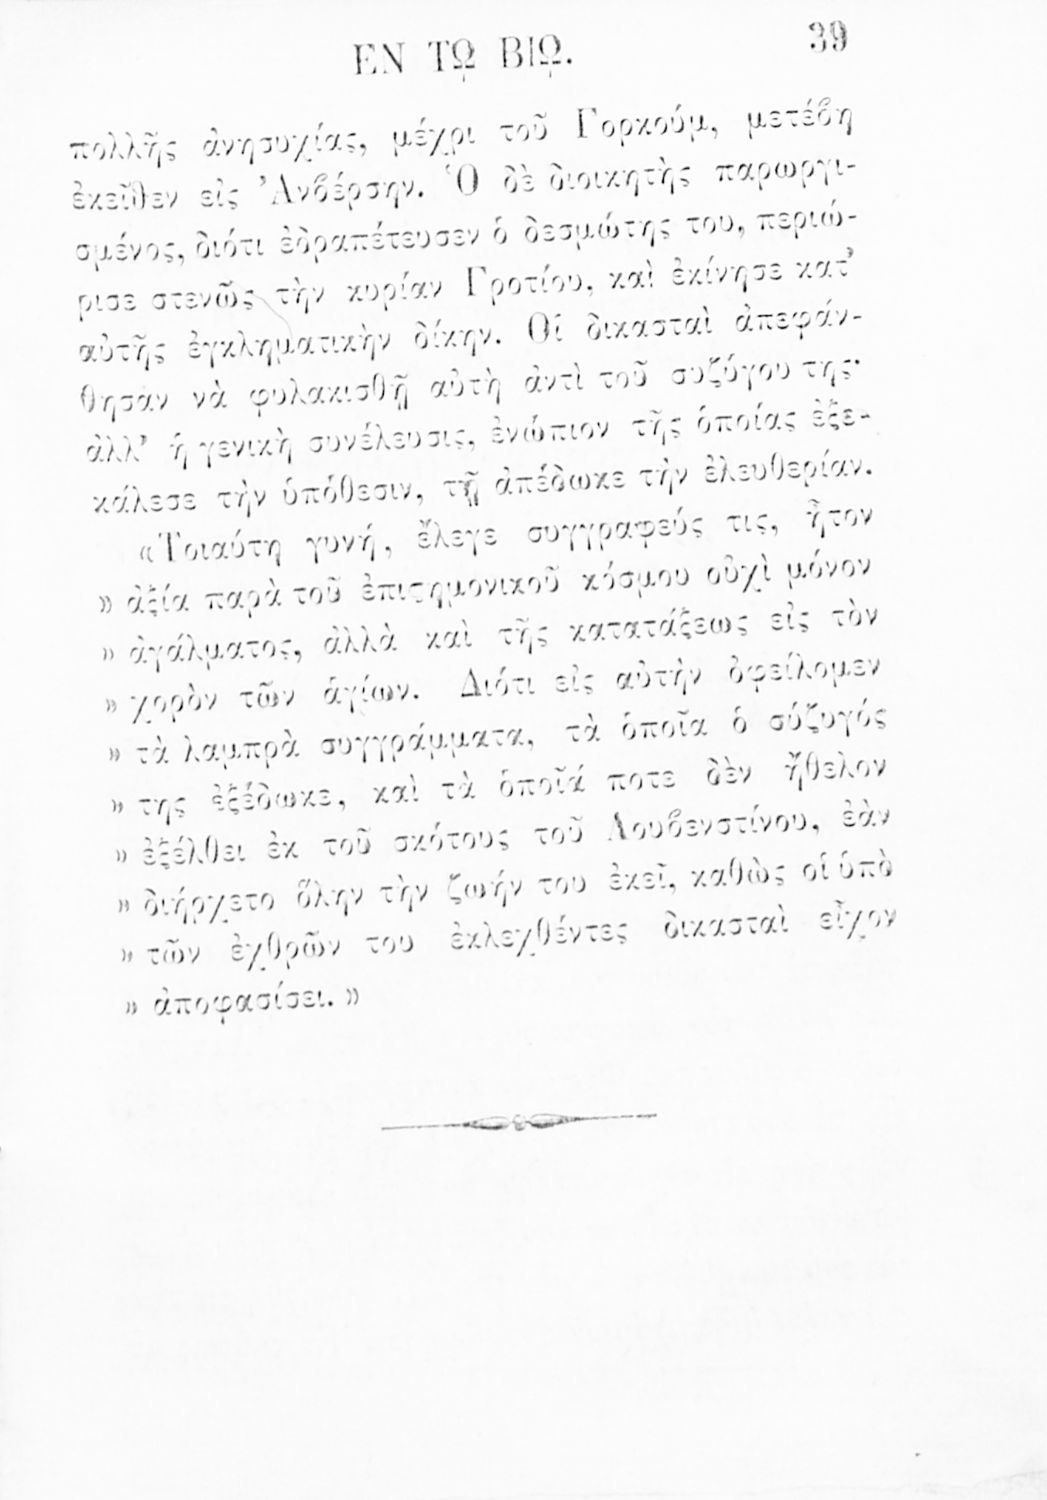 ΕΝ Τῼ ΒΙῼ. 39
πολλῆς ἀνησυχίας, μέχρι τοῦ Γορκούμ, μετέβη
ἐκεῖθεν εἰς Ἀνβέρσην. Ὁ δὲ διοικητὴς παρωργι-
σμένος, διότι ἐδραπέτευσεν ὁ δεσμώτης του, περιώ-
ρισε στενῶς τὴν κυρίαν Γροτίου, καὶ ἐκίνησε κατ’
αὐτῆς ἐγκληματικὴν δίκην. Οἱ δικασταὶ ἀπεφάν-
θησαν νὰ φυλακισθῇ αὐτὴ ἀντὶ τοῦ συζύγου της·
ἀλλ’ ἡ γενικὴ συνέλευσις, ἐνώπιον τῆς ὁποίας ἐξε-
κάλεσε τὴν ὑπόθεσιν, τῇ ἀπέδωκε τὴν ἐλευθερίαν.
«Τοιαύτη γυνή, ἔλεγε συγγραφεύς τις, ἦτον
» ἀξία παρὰ τοῦ ἐπιϛημονικοῦ κόσμου οὐχὶ μόνον
» ἀγάλματος, ἀλλὰ καὶ τῆς κατατάξεως εἰς τὸν
» χορὸν τῶν ἁγίων. Διότι εἰς αὐτὴν ὀφείλομεν
» τὰ λαμπρὰ συγγράμματα, τὰ ὁποῖα ὁ σύζυγός
» της ἐξέδωκε, καὶ τὰ ὁποῖά ποτε δὲν ἤθελον
» ἐξέλθει ἐκ τοῦ σκότους τοῦ Λουβενστίνου, ἐὰν
» διήρχετο ὅλην τὴν ζωήν του ἐκεῖ, καθὼς οἱ ὑπὸ
» τῶν ἐχθρῶν του ἐκλεχθέντες δικασταὶ εἶχον
» ἀποφασίσει. »